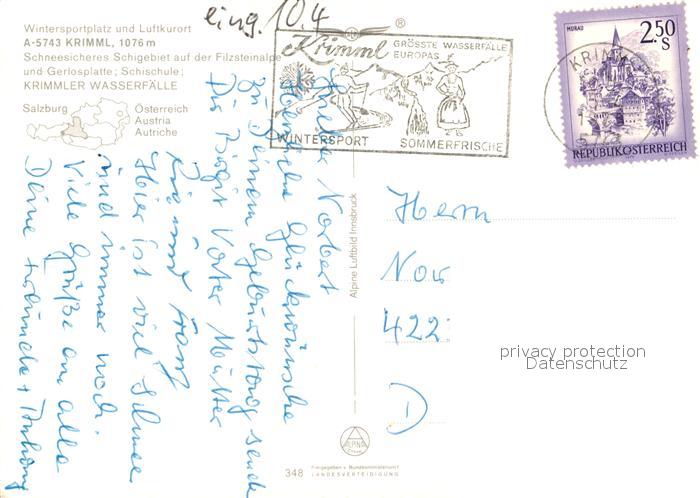 Wintersportplatz und Luftkurort
A-5743 KRIMML, 1076 m
Schneesicheres Schigebiet auf der Filzsteinalpe
und Gerlosplatte; Schischule;
KRIMMLER WASSERFÄLLE
Salzburg
Österreich
Austria
Autriche
eing. 10.4
®
Krimml GRÖSSTE WASSERFÄLLE
EUROPAS
WINTERSPORT SOMMERFRISCHE
MURAU
2.50
S
KRIMML
REPUBLIK ÖSTERREICH
Lieber Norbert
Herzliche Glückwünsche
zu Deinem Geburtstag sende
Dir Birgit Vater Mutter
und Franz
Hier ist viel Schnee
und immer noch.
Viele Grüße an alle
Deine
Alpine Luftbild Innsbruck
Herrn
Nor
422
D
privacy protection
Datenschutz
ALPINA
348
Freigegeben v. Bundesministerium f.
LANDESVERTEIDIGUNG